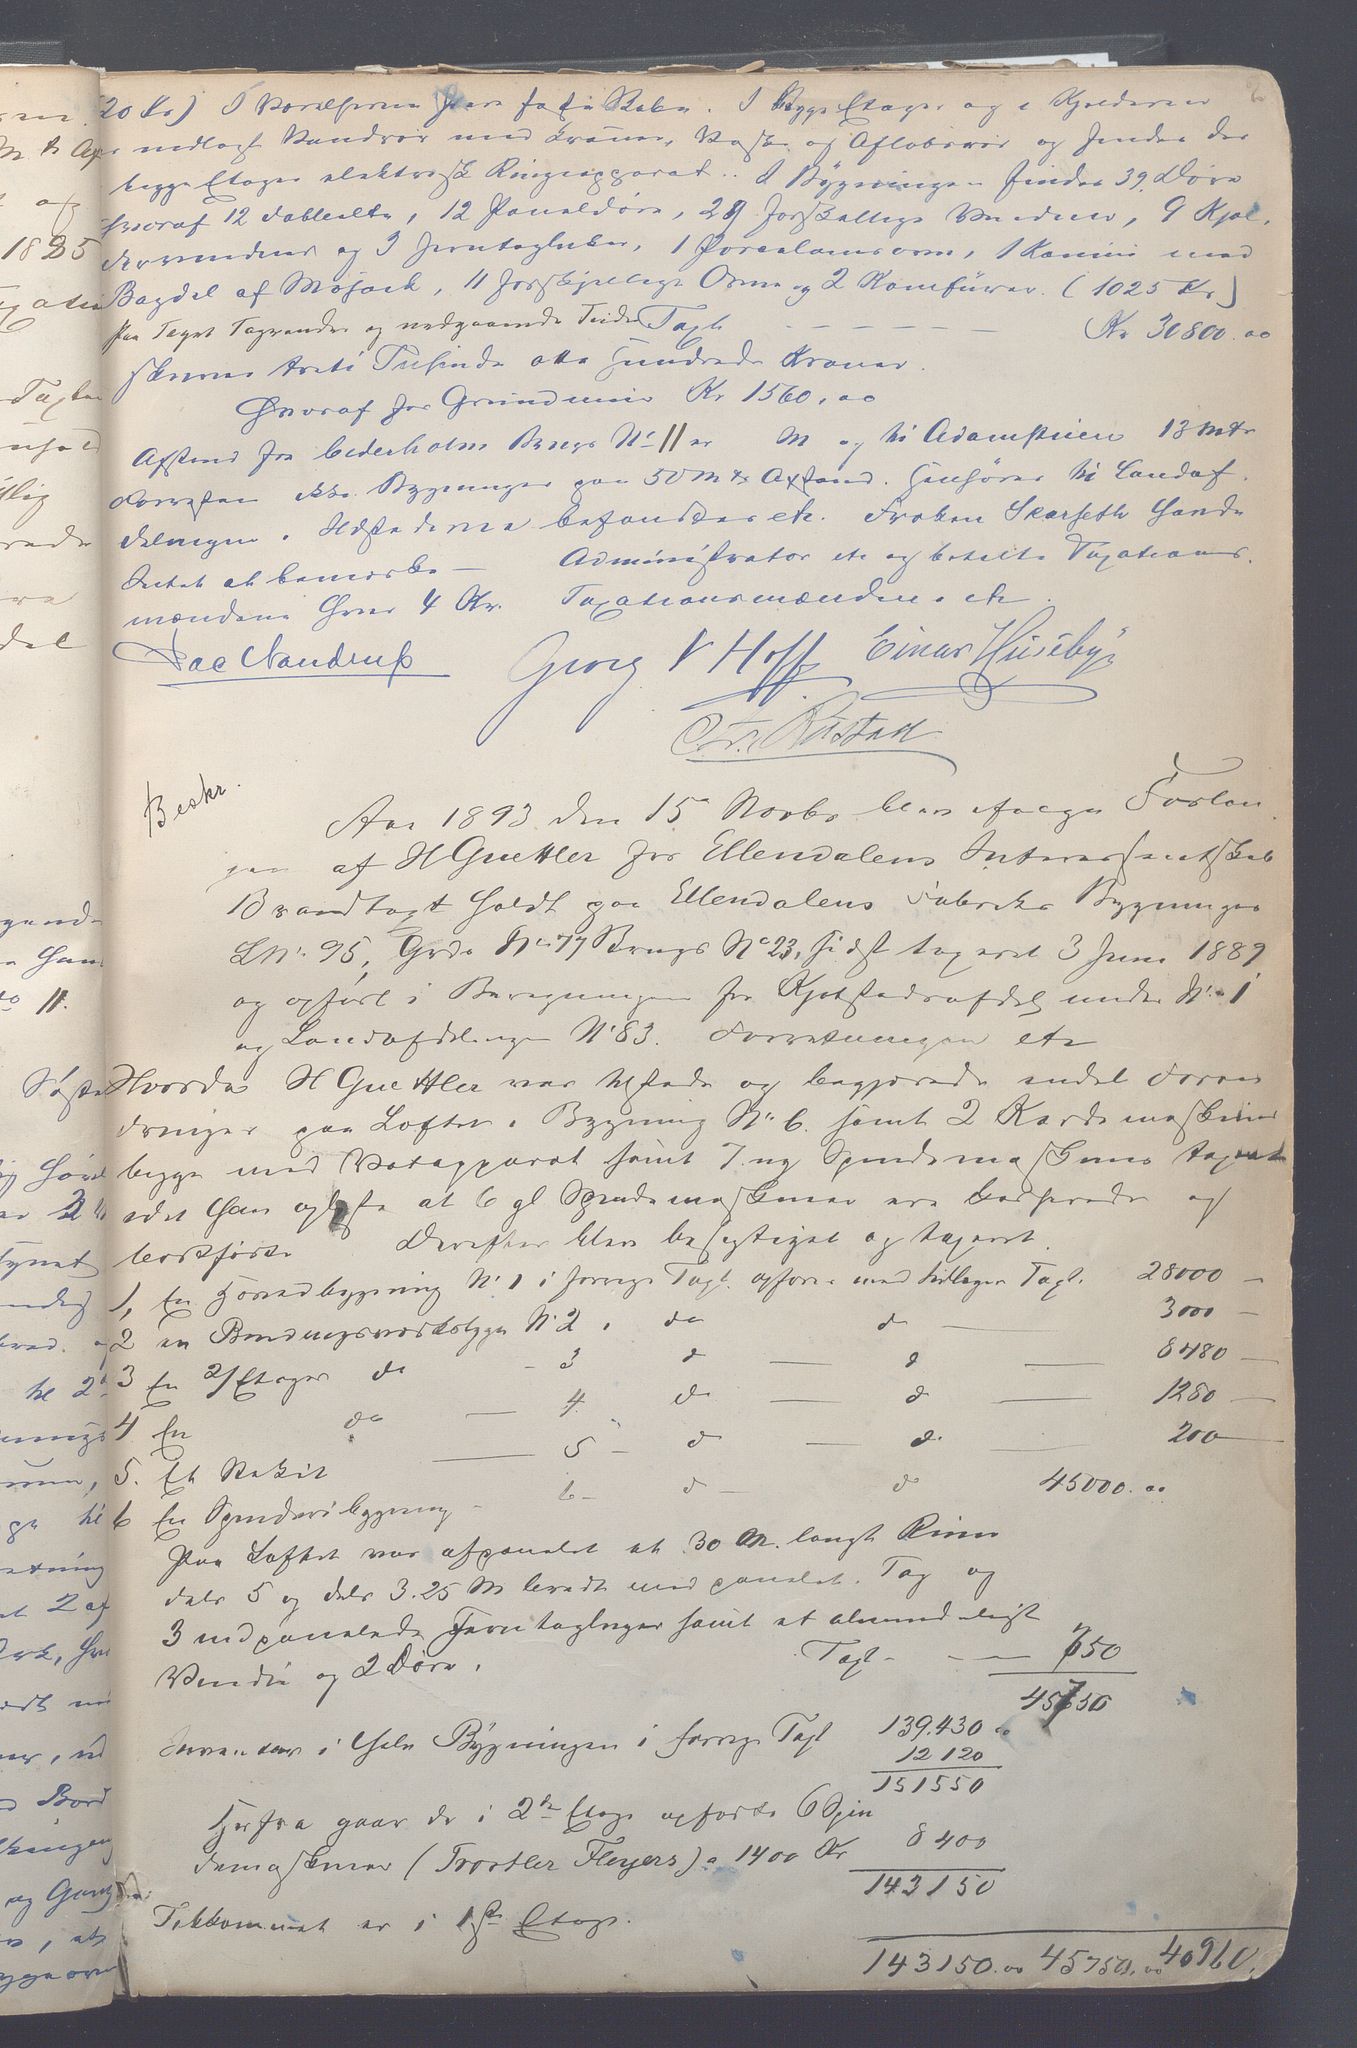 (20 Kr) I Værelserne faste Skabe. I Begge Etager og i Kjelderen
nedlagt Vandrør med Kraner, Vaske og Afløbsrør og findes der
begge Etager elektrisk Ringeapparat. I Bygningen findes 39 Døre
hvoraf 12 dobbelte, 12 Paneldøre, 29 forskjellige Vinduer, 9 Kjel-
dervinduer og 3 Jerntagluker, 1 Porcelænsovn, 1 Kamin med
Bagdel af Mosaik, 11 forskjellige Ovne og 2 Komfürer. (1025 Kr)
Paa Taget Tagrender og nedgaaende Taxt Kr 30800.00
skriver Treti Tusinde otte Hundrede Kroner.
Hvoraf for Grundmur Kr 1560,00
Afstand fra Cederholms Brugs No 11 er M og til Adamstuen 13 Mtr
forresten ikke Bygninger paa 50 Mtr Afstand. Henhører til Landaf-
delingen. Ildstederne befandtes etc. Frøken Skarseth havde
Intet at bemærke — Administrator etc og betalte Taxations-
mændene hver 4 Kr. Taxationsmændene etc.
Georg V Hoff Einar Huseby
Chr. Ristad
Beskr.
Aar 1893 den 15 Novbr blev ifølge Forlan-
gen af H Guettler for Ellendalens Interessentskab
Brandtaxt holdt paa Ellendalens Fabriks Bygninger
LNr. 95, Grds No 77 Brugs No 23, sidst taxeret 3 Juni 1889
og opført i Beregningen for Kjøbstadsafdelg under No 1
og Landafdelingen No 83. Forretningen etc
Hvorda H Guettler var tilstede og begjærede endel Foran-
dringer paa Loftet i Bygning No 6. samt 2 Kardemaskiner
begge med Vatapparat samt 7 ny Spindemaskiner taxeret
idet han oplyste at 6 gl Spindemaskiner ere kasserede og
bortførte Derefter blev besigtiget og taxeret.
1, En Hovedbygning No 1 i forrige Taxt. opføres med tillagte Taxt. 28000 —
2 en Bindingsværksbygn No 2. do d — 3000 —
3 En 2/Etages do - 3 d — d — 8480 —
4 En do — 4. do — d — 1280 —
5. Et Stakit — 5 — d — d. — 200 —
6 En Spinderibygning - 6 - d — d 45000.00
Paa Loftet var afpanelet et 30 M. langt Rum
dels 5 og dels 3.25 M bredt med panelet Tag og
3 indpanelede Jerntagluger samt et almindeligt
Vindu og 2 Døre. Taxt - — 750
45750
Inventar i hele Bygningen i forrige Taxt 139.430 00
12 120
151550
Herfra gaar de i 2den Etage opførte 6 Spin-
demaskiner (Trostler Fleyers) a 1400 Kr 8 400
143150
Tilkommet er i 1ste Etage.
143150.00 45750.00 40960.